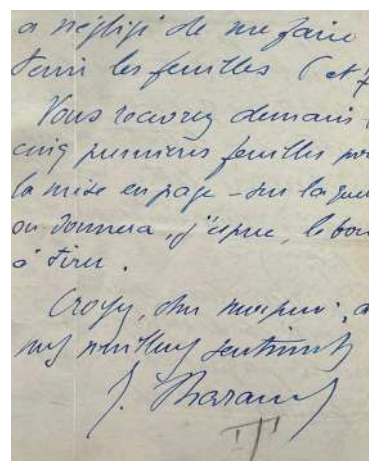 a négligé de me faire
tenir les feuilles 6 et 7
Vous recevrez demain
cinq premières feuilles pour
la mise en page - sur laquelle
on donnera, j'espère, le bon
à tirer.
Croyez, cher monsieur, à
mes meilleurs sentiments
J. Tharaud